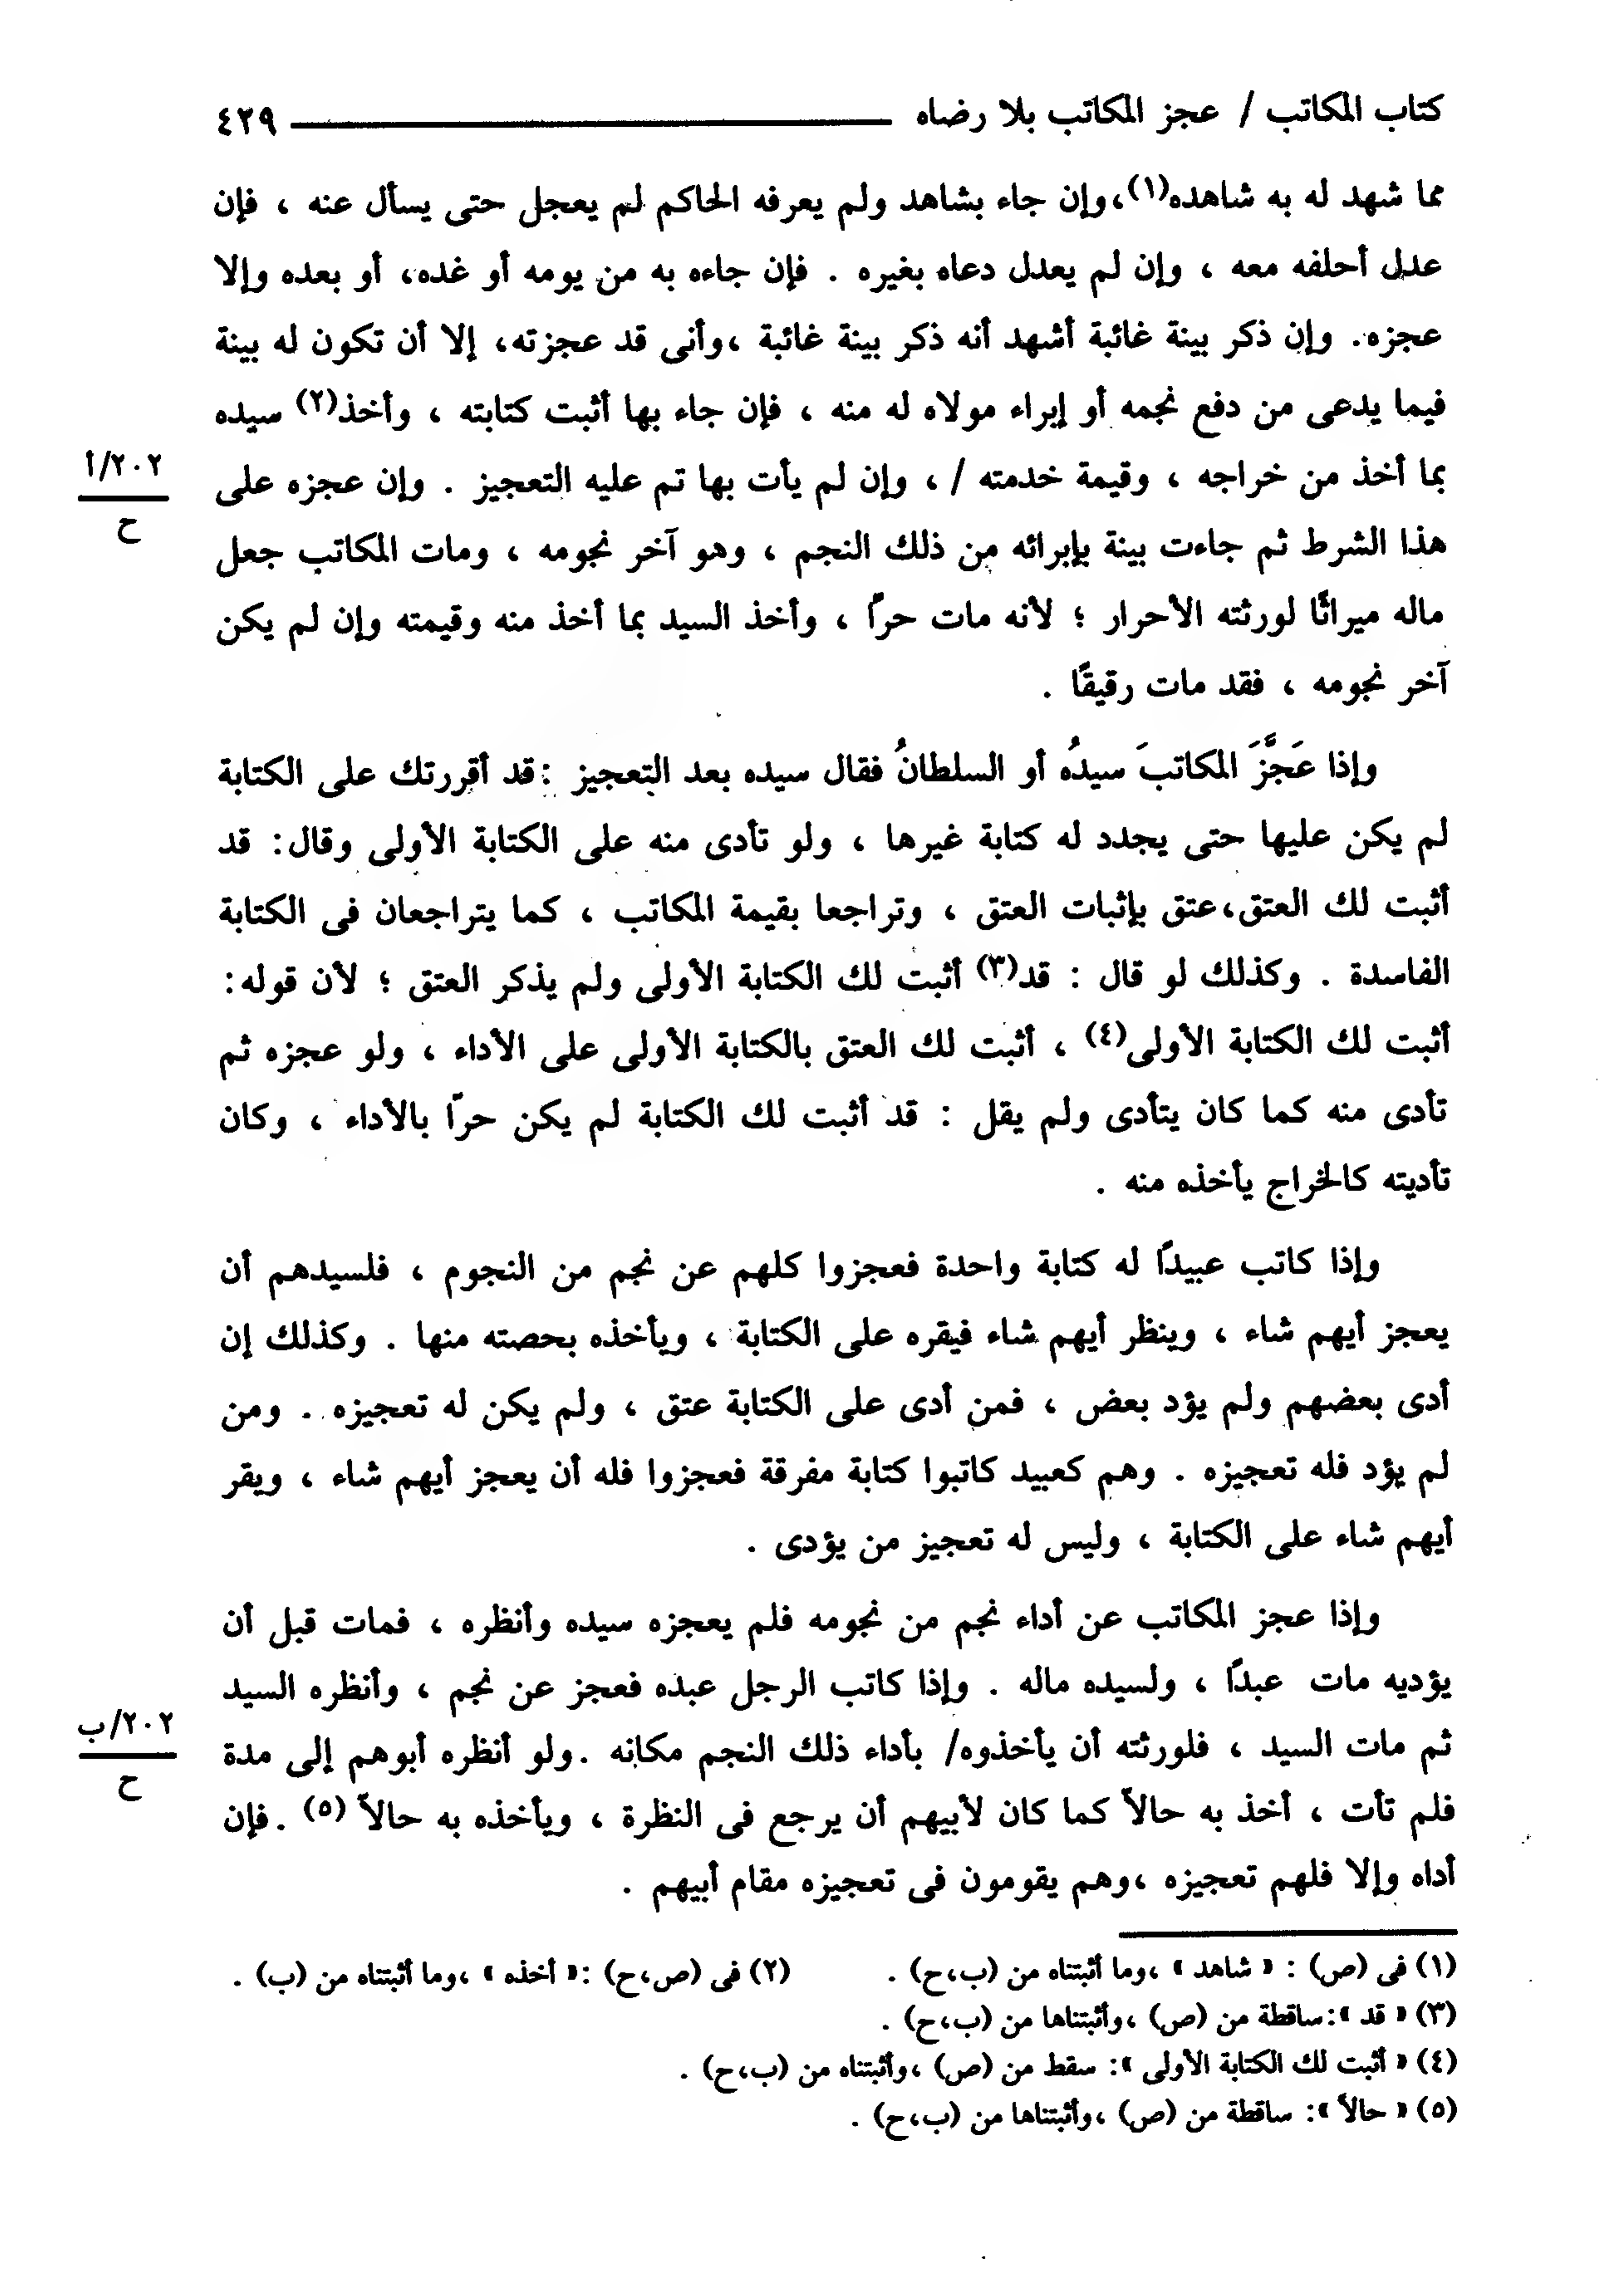 كتاب المكاتب / عجز المكاتب بلا رضاه ٤٢٩
مما شهد له به شاهده(١)،وإن جاء بشاهد ولم يعرفه الحاكم لم يعجل حتى يسأل عنه ، فإن
عدل أحلفه معه ، وإن لم يعدل دعاه بغيره . فإن جاءه به من يومه أو غده، أو بعده وإلا
عجزه. وإن ذكر بينة غائبة أشهد أنه ذكر بينة غائبة ،وأنى قد عجزته، إلا أن تكون له بينة
فيما يدعى من دفع نجمه أو إبراء مولاه له منه ، فإن جاء بها أثبت كتابته ، وأخذ(٢) سيده
بما أخذ من خراجه ، وقيمة خدمته / ، وإن لم يأت بها تم عليه التعجيز . وإن عجزه على
٢٠٢/أ
ح
هذا الشرط ثم جاءت بينة بإبرائه من ذلك النجم ، وهو آخر نجومه ، ومات المكاتب جعل
ماله ميراثًا لورثته الأحرار ؛ لأنه مات حراً ، وأخذ السيد بما أخذ منه وقيمته وإن لم يكن
آخر نجومه ، فقد مات رقيقًا .
وإذا عَجَّزَ المكاتبَ سيدُه أو السلطانُ فقال سيده بعد التعجيز :قد أقررتك على الكتابة
لم يكن عليها حتى يجدد له كتابة غيرها ، ولو تأدى منه على الكتابة الأولى وقال: قد
أثبت لك العتق،عتق بإثبات العتق ، وتراجعا بقيمة المكاتب ، كما يتراجعان فى الكتابة
الفاسدة . وكذلك لو قال : قد(٣) أثبت لك الكتابة الأولى ولم يذكر العتق ؛ لأن قوله:
أثبت لك الكتابة الأولى(٤) ، أثبت لك العتق بالكتابة الأولى على الأداء ، ولو عجزه ثم
تأدى منه كما كان يتأدى ولم يقل : قد أثبت لك الكتابة لم يكن حراً بالأداء ، وكان
تأديته كالخراج يأخذه منه .
وإذا كاتب عبيدًا له كتابة واحدة فعجزوا كلهم عن نجم من النجوم ، فلسيدهم أن
يعجز أيهم شاء ، وينظر أيهم شاء فيقره على الكتابة ، ويأخذه بحصته منها . وكذلك إن
أدى بعضهم ولم يؤد بعض ، فمن أدى على الكتابة عتق ، ولم يكن له تعجيزه . ومن
لم يؤد فله تعجيزه . وهم كعبيد كاتبوا كتابة مفرقة فعجزوا فله أن يعجز أيهم شاء ، ويقر
أيهم شاء على الكتابة ، وليس له تعجيز من يؤدى .
وإذا عجز المكاتب عن أداء نجم من نجومه فلم يعجزه سيده وأنظره ، فمات قبل أن
يؤديه مات عبدًا ، ولسيده ماله . وإذا كاتب الرجل عبده فعجز عن نجم ، وأنظره السيد
ثم مات السيد ، فلورثته أن يأخذوه/ بأداء ذلك النجم مكانه .ولو أنظره أبوهم إلى مدة
٢٠٢/ب
ح
فلم تأت ، أخذ به حالاً كما كان لأبيهم أن يرجع فى النظرة ، ويأخذه به حالاً (٥) .فإن
أداه وإلا فلهم تعجيزه ،وهم يقومون فى تعجيزه مقام أبيهم .
(١) فى (ص) : « شاهد » ،وما أثبتناه من (ب،ح) . (٢) فى (ص،ح) :« أخذه » ،وما أثبتناه من (ب) .
(٣) « قد »:ساقطة من (ص) ،وأثبتناها من (ب،ح) .
(٤) « أثبت لك الكتابة الأولى »: سقط من (ص) ،وأثبتناه من (ب،ح) .
(٥) « حالاً »: ساقطة من (ص) ،وأثبتناها من (ب،ح) .